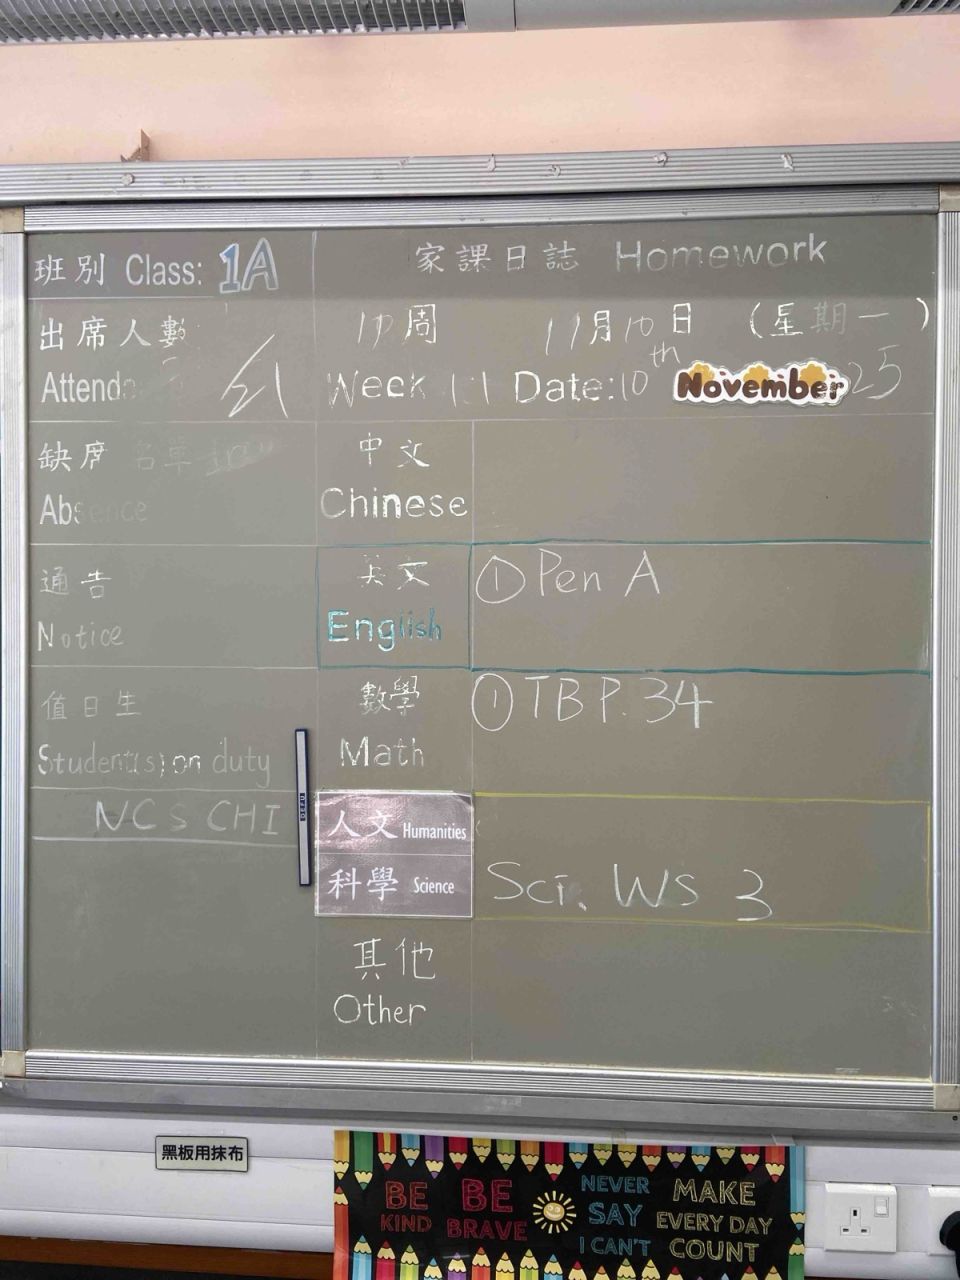 班別 Class: 1A
家課日誌 Homework
出席人數
Attend
周
11月10日 (星期一)
Week
Date: 10th November 25
缺席 名單
Absence
中文
Chinese
通告
Notice
英文
English
① Pen A
值日生
Student(s) on duty
數學
Math
① TB P. 34
NCS CHI
人文 Humanities
科學 Science
Sci. WS 3
其他
Other
黑板用抹布
BE KIND
BE BRAVE
NEVER SAY I CAN'T
MAKE EVERY DAY COUNT